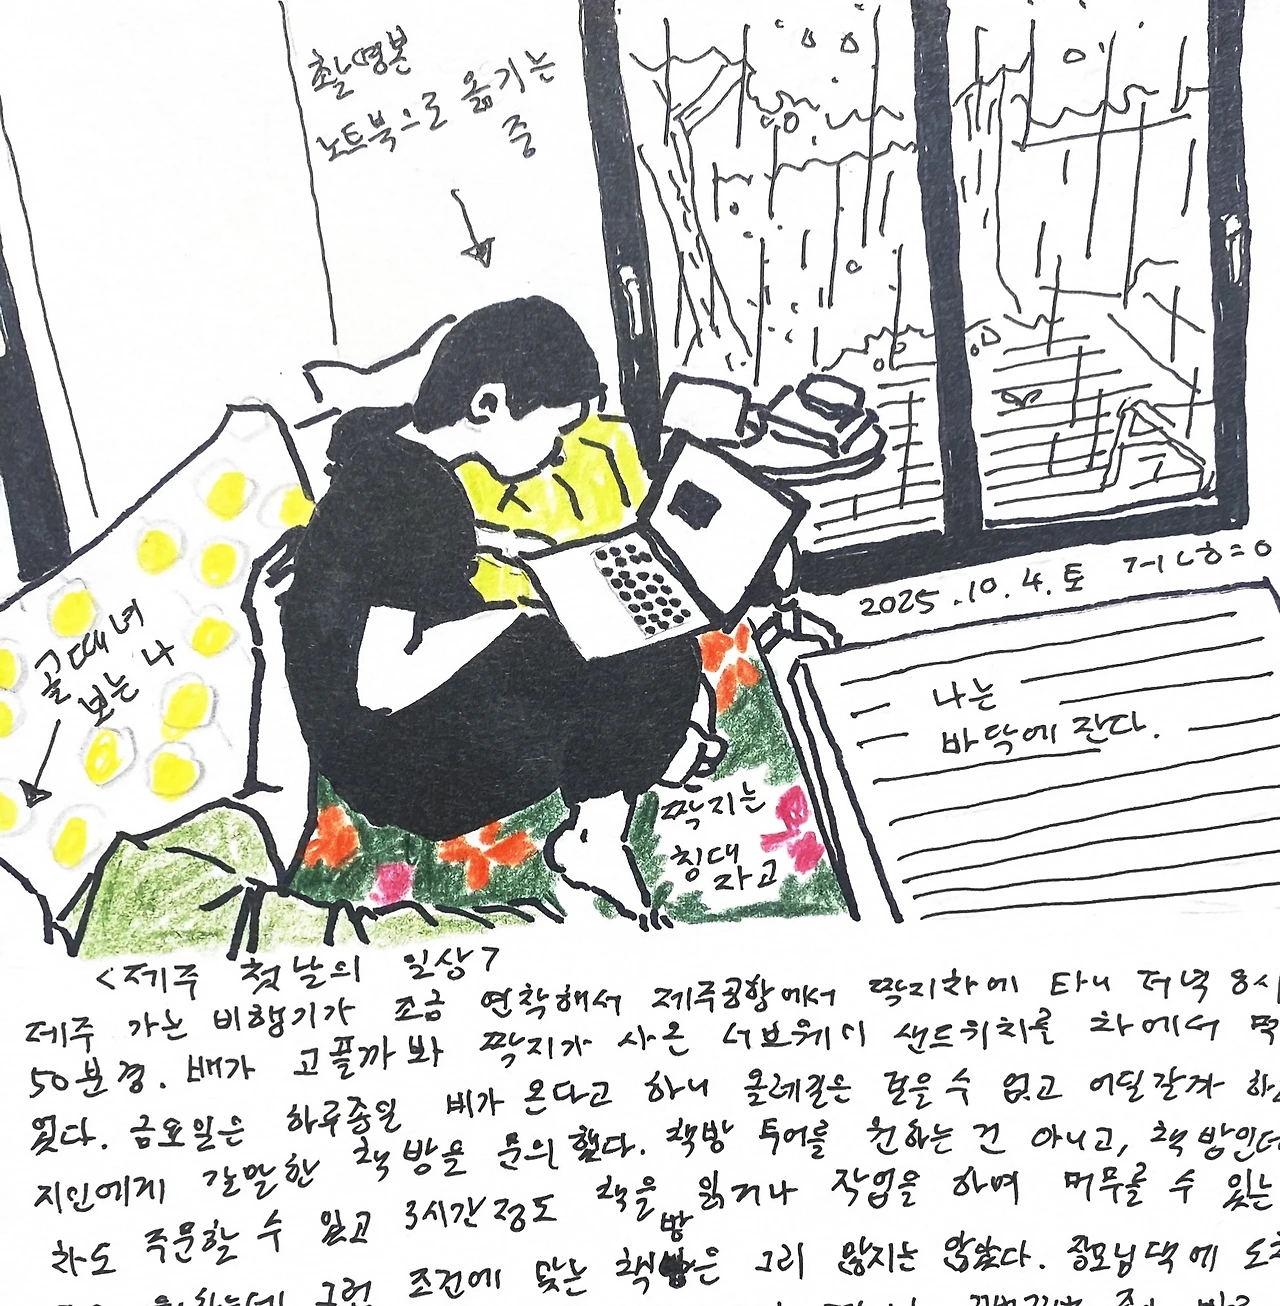 촬영본
노트북으로 옮기는
중
골때녀
보는 나
2025.10.4.토 ㄱㅓㄴㅎ=ㅇ
나는
바닥에 잔다.
짝지는
침대
자고
<제주 첫날의 일상>
제주 가는 비행기가 조금 연착해서 제주공항에서 짝지차에 타니 저녁 8시
50분경. 배가 고플까봐 짝지가 사온 서브웨이 샌드위치를 차에서 먹
었다. 금요일은 하루종일 비가 온다고 하니 올레길은 걸을 수 없고 어딜갈까 하
지인에게 갈만한 책방을 문의했다. 책방 투어를 원하는 건 아니고, 책방인데
차도 주문할 수 있고 3시간 정도 책을 읽거나 작업을 하며 머무를 수 있는
그런 조건에 맞는 책방은 그리 많지는 않았다. 장모님댁에